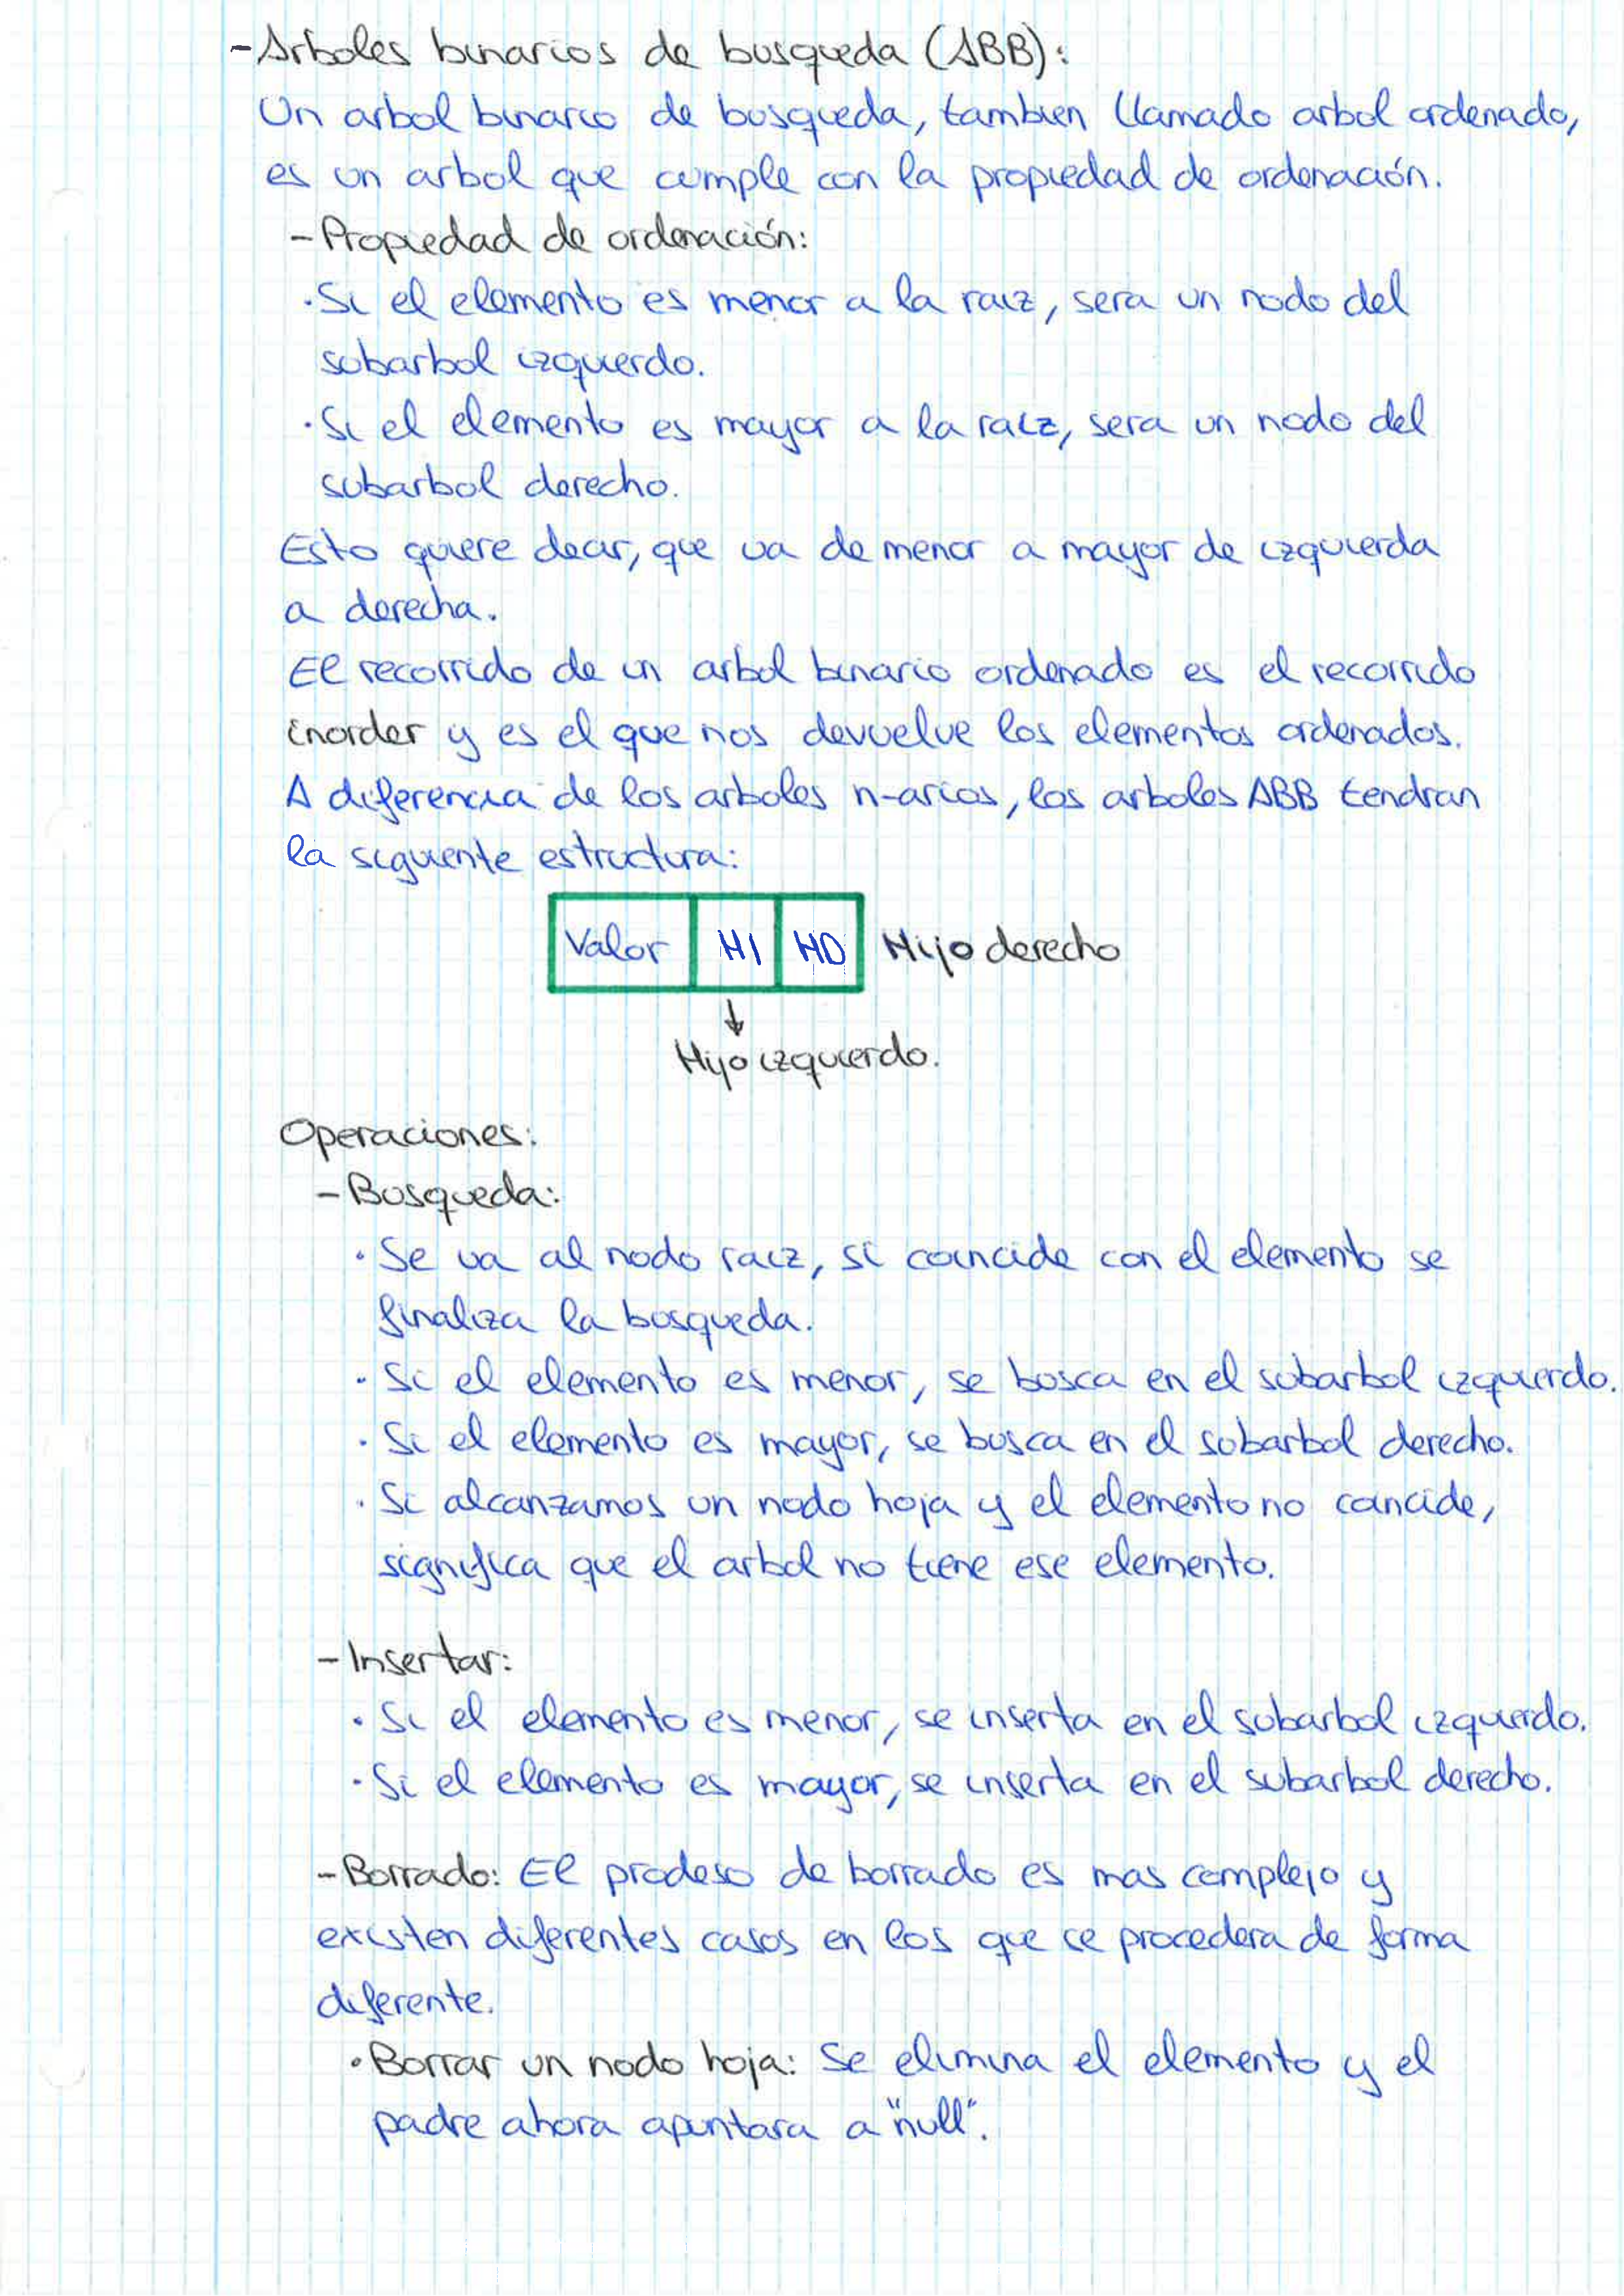 -Arboles binarios de busqueda (ABB):
Un arbol binario de busqueda, tambien llamado arbol ordenado,
es un arbol que cumple con la propiedad de ordenación.
-Propiedad de ordenación:
·Si el elemento es menor a la raiz, sera un nodo del
subarbol izquierdo.
·Si el elemento es mayor a la raiz, sera un nodo del
subarbol derecho.
Esto quiere decir, que va de menor a mayor de izquierda
a derecha.
El recorrido de un arbol binario ordenado es el recorrido
inorder y es el que nos devuelve los elementos ordenados.
A diferencia de los arboles n-arios, los arboles ABB tendran
la siguiente estructura:
Valor HI HD Hijo derecho
↓
Hijo izquierdo.
Operaciones:
-Busqueda:
· Se va al nodo raiz, si coincide con el elemento se
finaliza la busqueda.
· Si el elemento es menor, se busca en el subarbol izquierdo.
· Si el elemento es mayor, se busca en el subarbol derecho.
· Si alcanzamos un nodo hoja y el elemento no coincide,
significa que el arbol no tiene ese elemento.
-Insertar:
· Si el elemento es menor, se inserta en el subarbol izquierdo.
· Si el elemento es mayor, se inserta en el subarbol derecho.
-Borrado: El prodeso de borrado es mas complejo y
existen diferentes casos en los que se procedera de forma
diferente.
·Borrar un nodo hoja: Se elimina el elemento y el
padre ahora apuntara a "null".